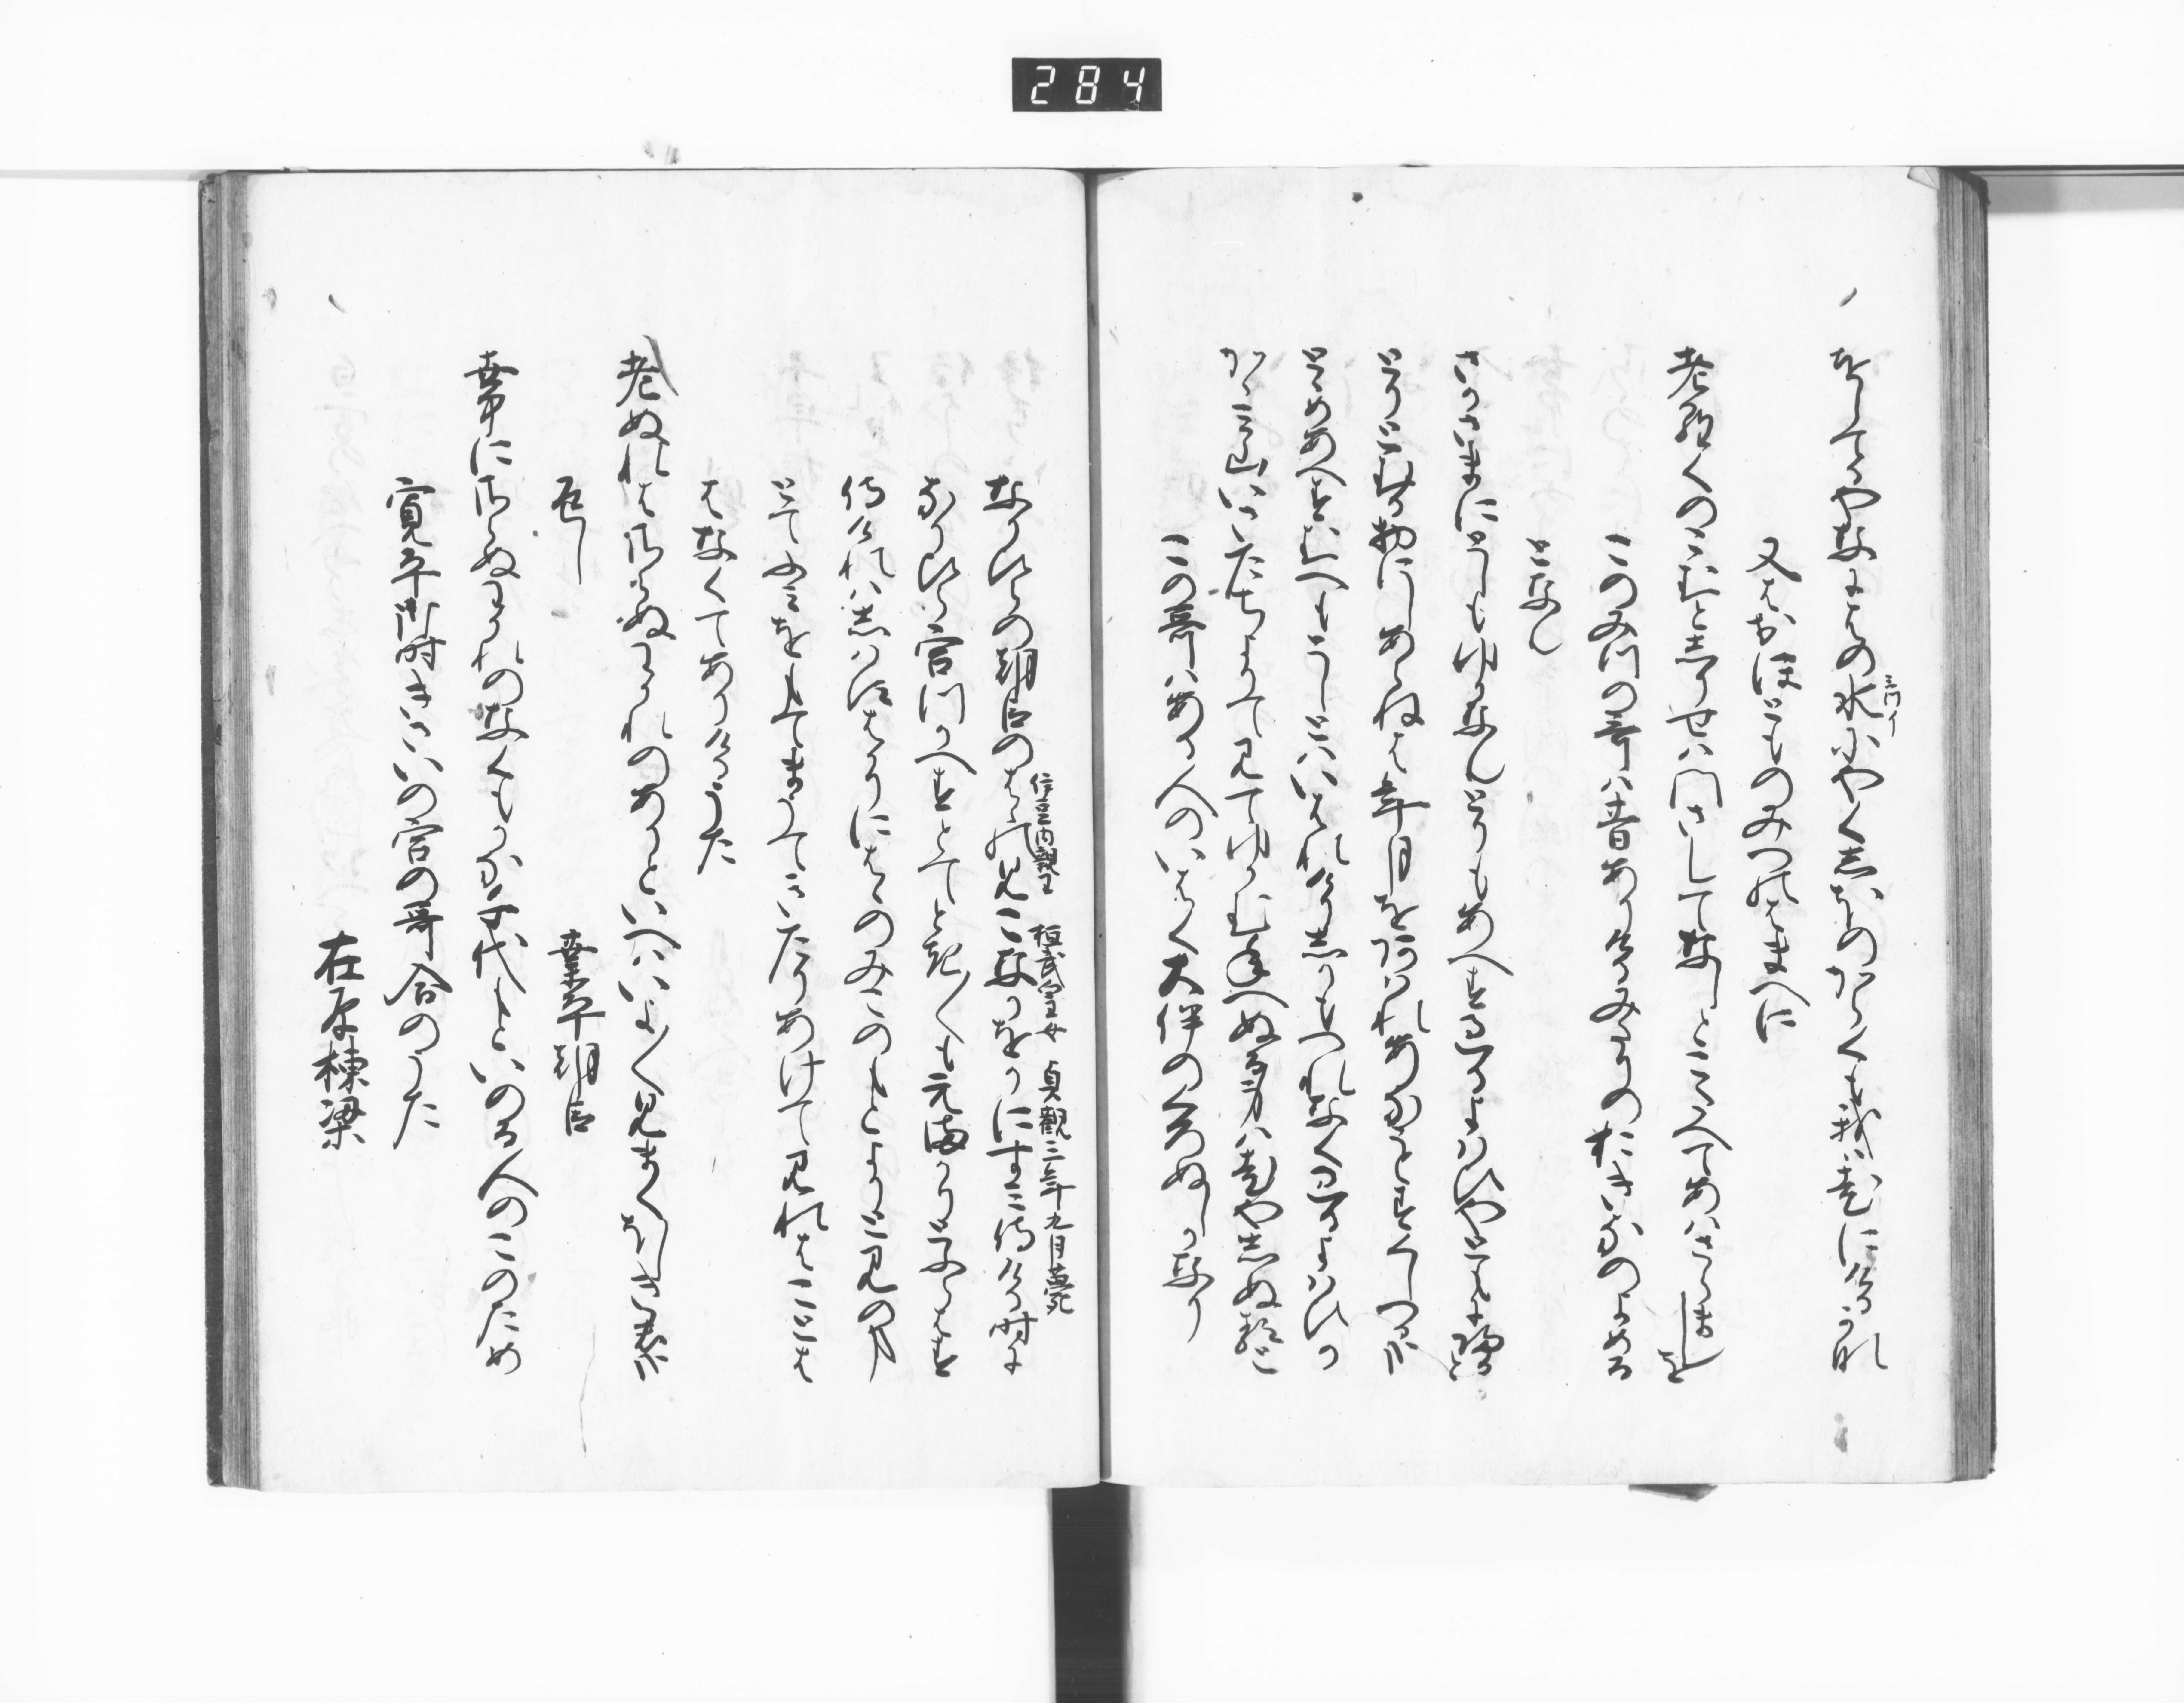 284
をしてるや難波の水にやくしほのからくも我は老にける哉
三つイ
又はおほとものみつのはまへに
老らくのこむとしりせは門さしてなしとこたへてあはさらましを
このみつの哥は昔ありけるみたりのおきなのよめる
となむ
さかさまにとしもゆかなんとりもあへすすくるよはひやともにかへると
とりとむる物にしあらねは年月をあはれあなうとすくしつる哉
とゝめあへすむへもとしとはいはれけりしかもつれなくすくるよはひか
かゝみ山いさたちよりて見てゆかむ年へぬる身は老やしぬると
この哥はある人のいはく大伴のくろぬしか也
伊豆内親王 桓武皇女 貞観三年九月薨
なりひらの朝臣のはゝのみこなかをかにすみ侍ける時に
なりひら宮つかへすとてとき〱もえまかりとふらはす
侍けれはしはすはかりにはゝのみこのもとよりとみの事
とてふみをもてまうてきたりあけて見れはことは
はなくてありけるうた
老ぬれはさらぬわかれのありといへはいよ〱見まくほしき君哉
返し　業平朝臣
世中にさらぬわかれのなくもかな千代もといのる人のこのため
寛平御時きさいの宮の哥合のうた
在原棟梁